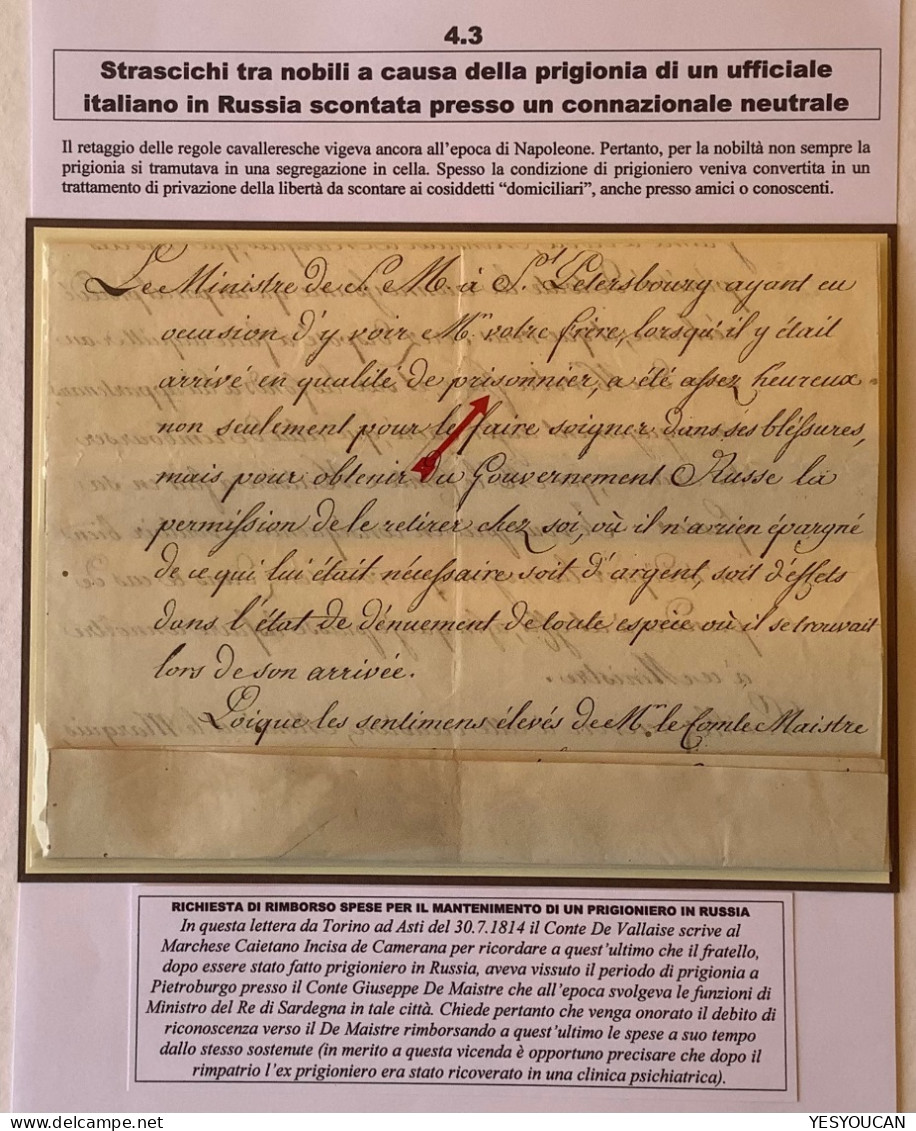 4.3
Strascichi tra nobili a causa della prigionia di un ufficiale
italiano in Russia scontata presso un connazionale neutrale
Il retaggio delle regole cavalleresche vigeva ancora all’epoca di Napoleone. Pertanto, per la nobiltà non sempre la
prigionia si tramutava in una segregazione in cella. Spesso la condizione di prigioniero veniva convertita in un
trattamento di privazione della libertà da scontare ai cosiddetti “domiciliari”, anche presso amici o conoscenti.
Le Ministre de S. M. à St. Petersbourg ayant eu
occasion d'y voir Mr. votre frère, lorsqu'il y était
arrivé en qualité de prisonnier, a été assez heureux
non seulement pour le faire soigner dans ses bléssures,
mais pour obtenir du Gouvernement Russe la
permission de le retirer chez soi, où il n'a rien épargné
de ce qui lui était nécessaire soit d'argent, soit d'effets
dans l'état de dénuement de toute espèce où il se trouvait
lors de son arrivée.
Loique les sentimens élevés de Mr. le Comte Maistre
RICHIESTA DI RIMBORSO SPESE PER IL MANTENIMENTO DI UN PRIGIONIERO IN RUSSIA
In questa lettera da Torino ad Asti del 30.7.1814 il Conte De Vallaise scrive al
Marchese Caietano Incisa de Camerana per ricordare a quest’ultimo che il fratello,
dopo essere stato fatto prigioniero in Russia, aveva vissuto il periodo di prigionia a
Pietroburgo presso il Conte Giuseppe De Maistre che all’epoca svolgeva le funzioni di
Ministro del Re di Sardegna in tale città. Chiede pertanto che venga onorato il debito di
riconoscenza verso il De Maistre rimborsando a quest’ultimo le spese a suo tempo
dallo stesso sostenute (in merito a questa vicenda è opportuno precisare che dopo il
rimpatrio l’ex prigioniero era stato ricoverato in una clinica psichiatrica).
YESYOUCAN